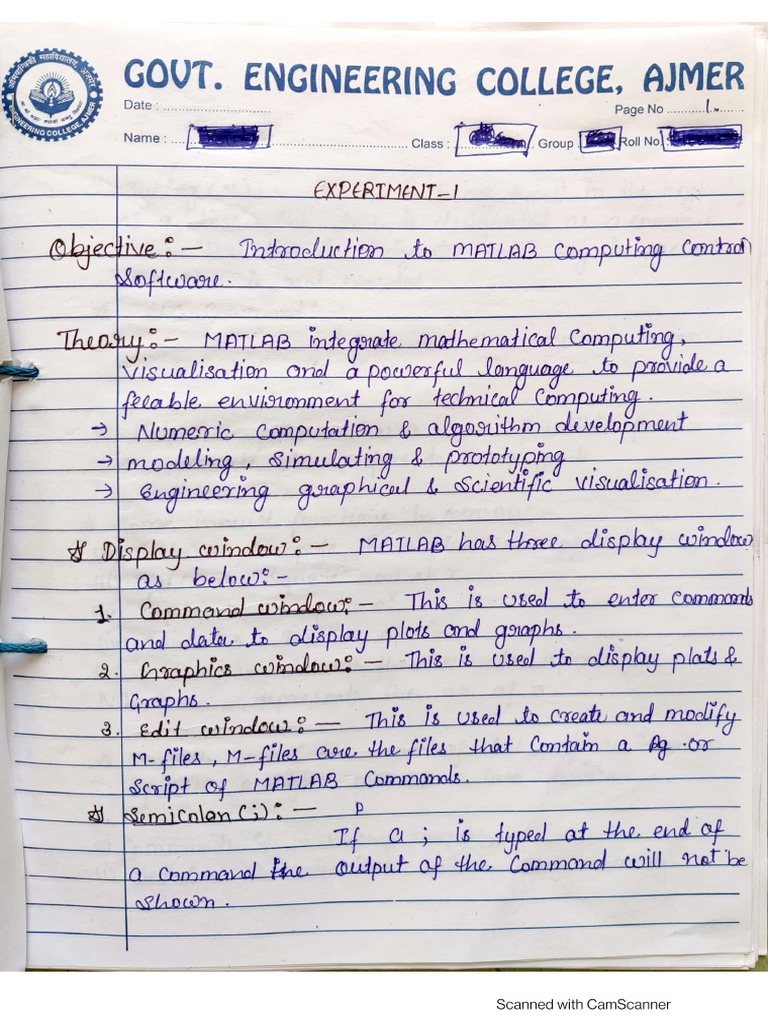 अभियान्त्रिकी महाविद्यालय, अजमेर
ENGINEERING COLLEGE, AJMER
GOVT. ENGINEERING COLLEGE, AJMER
Date : Page No 1
Name : Class : Group Roll No.
EXPERTMENT-1
Objective:- Introduction to MATLAB Computing Control
Software.
Theory:- MATLAB integrate mathematical Computing,
visualisation and a powerful language to provide a
felable environment for technical Computing.
→ Numeric Computation & algorithm development
→ modeling, Simulating & prototyping
→ Engineering graphical & Scientific visualisation.
Display window:- MATLAB has three display window
as below:-
1. Command window:- This is used to enter commands
and data to display plots and graphs.
2. Graphics window:- This is used to display plats &
Graphs.
3. Edit window:- This is used to create and modify
M-files, M-files are the files that Contain a Pg or
Script of MATLAB Commands.
Semicolan(;):- P
If a ; is typed at the end of
a command the output of the Command will not be
shown.
Scanned with CamScanner